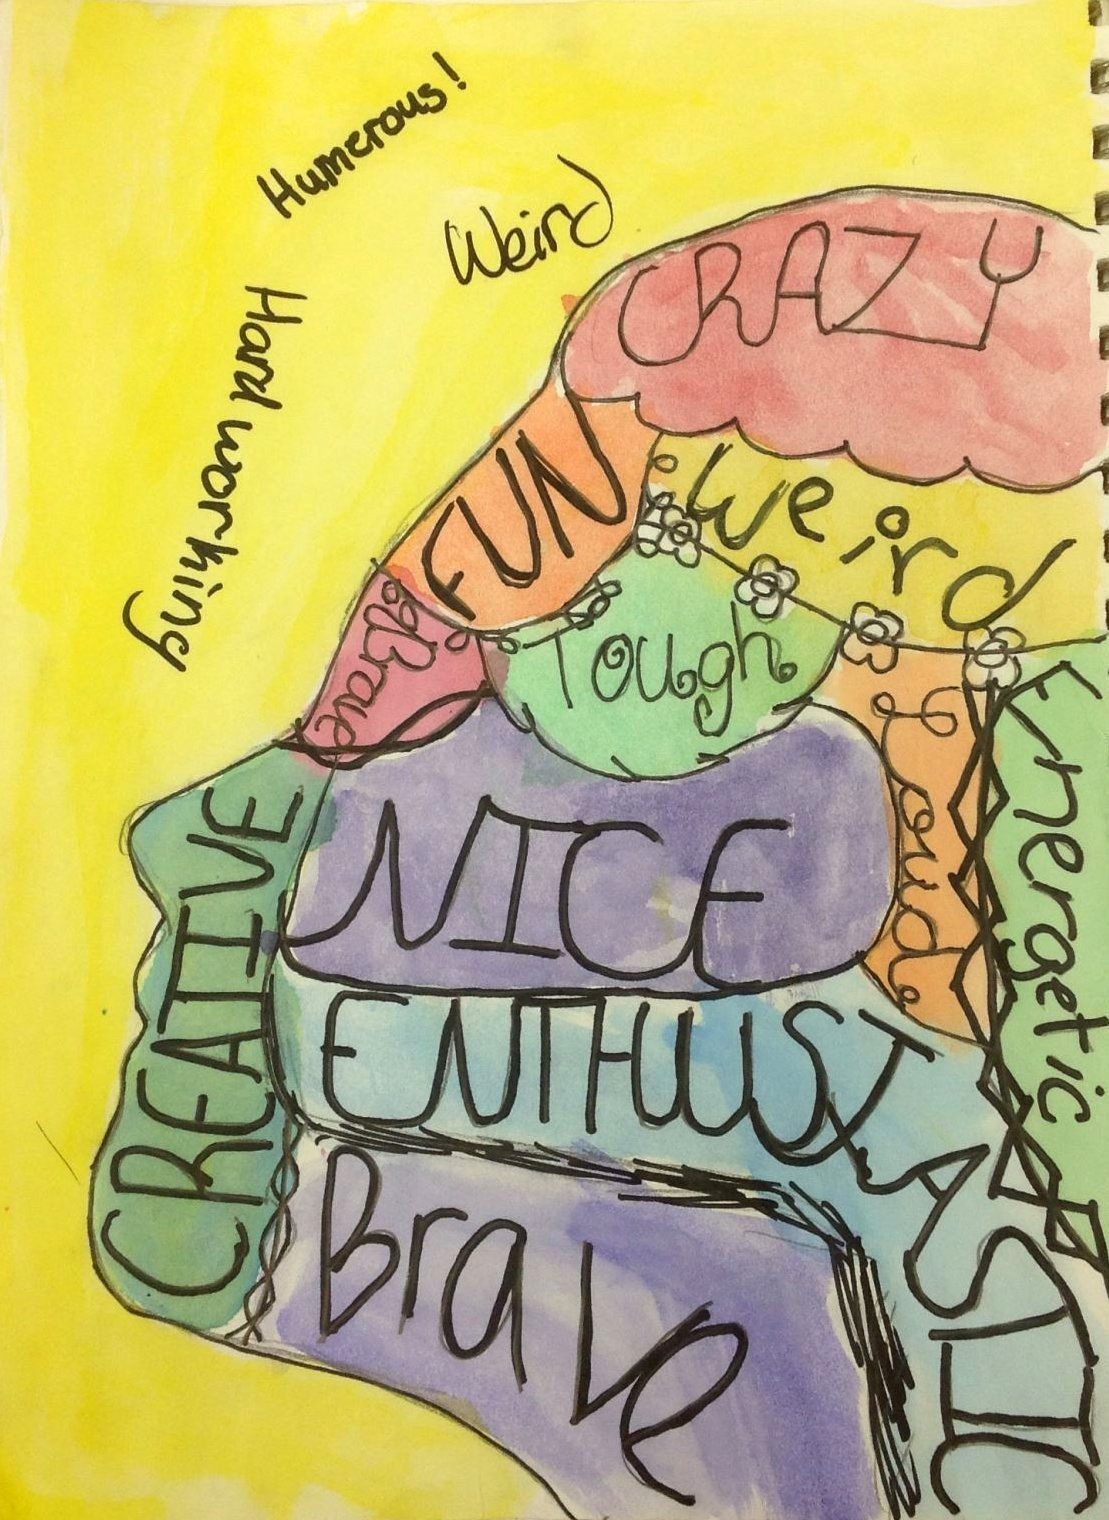 Humerous!
Weird
Hard working
CRAZY
FUN
Weird
Brave
Tough
Loud
Energetic
NICE
CREATIVE
ENTHUSIASTIC
Brave